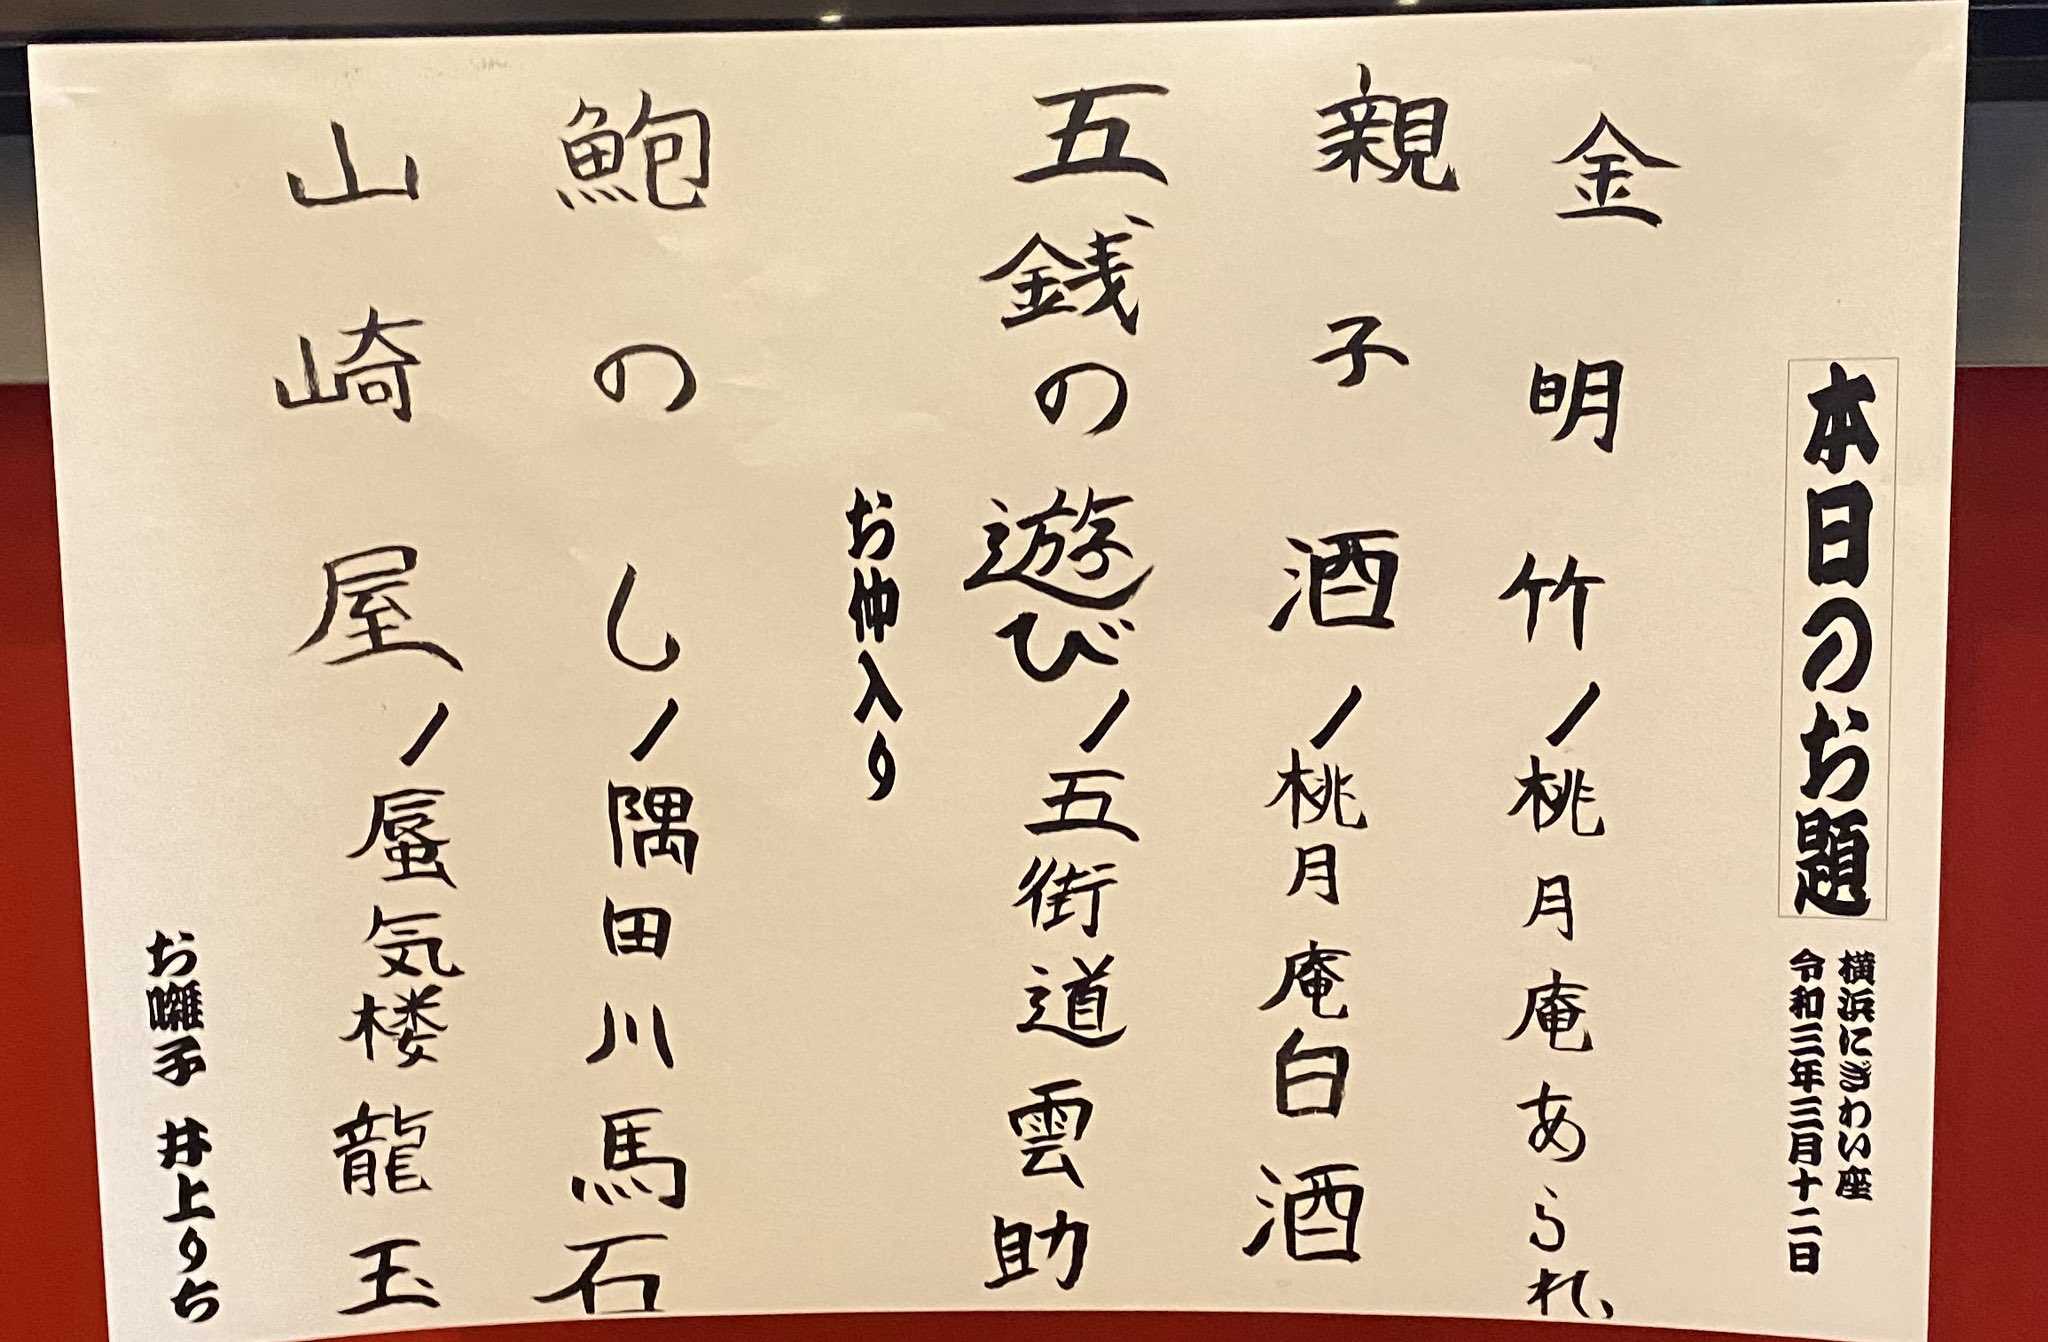 本日のお題
横浜にぎわい座
令和三年三月十二日
金明竹ノ桃月庵あられ
親子酒ノ桃月庵白酒
五銭の遊びノ五街道雲助
お仲入り
鮑のしノ隅田川馬石
山崎屋ノ蜃気楼龍玉
お囃子 井上りち